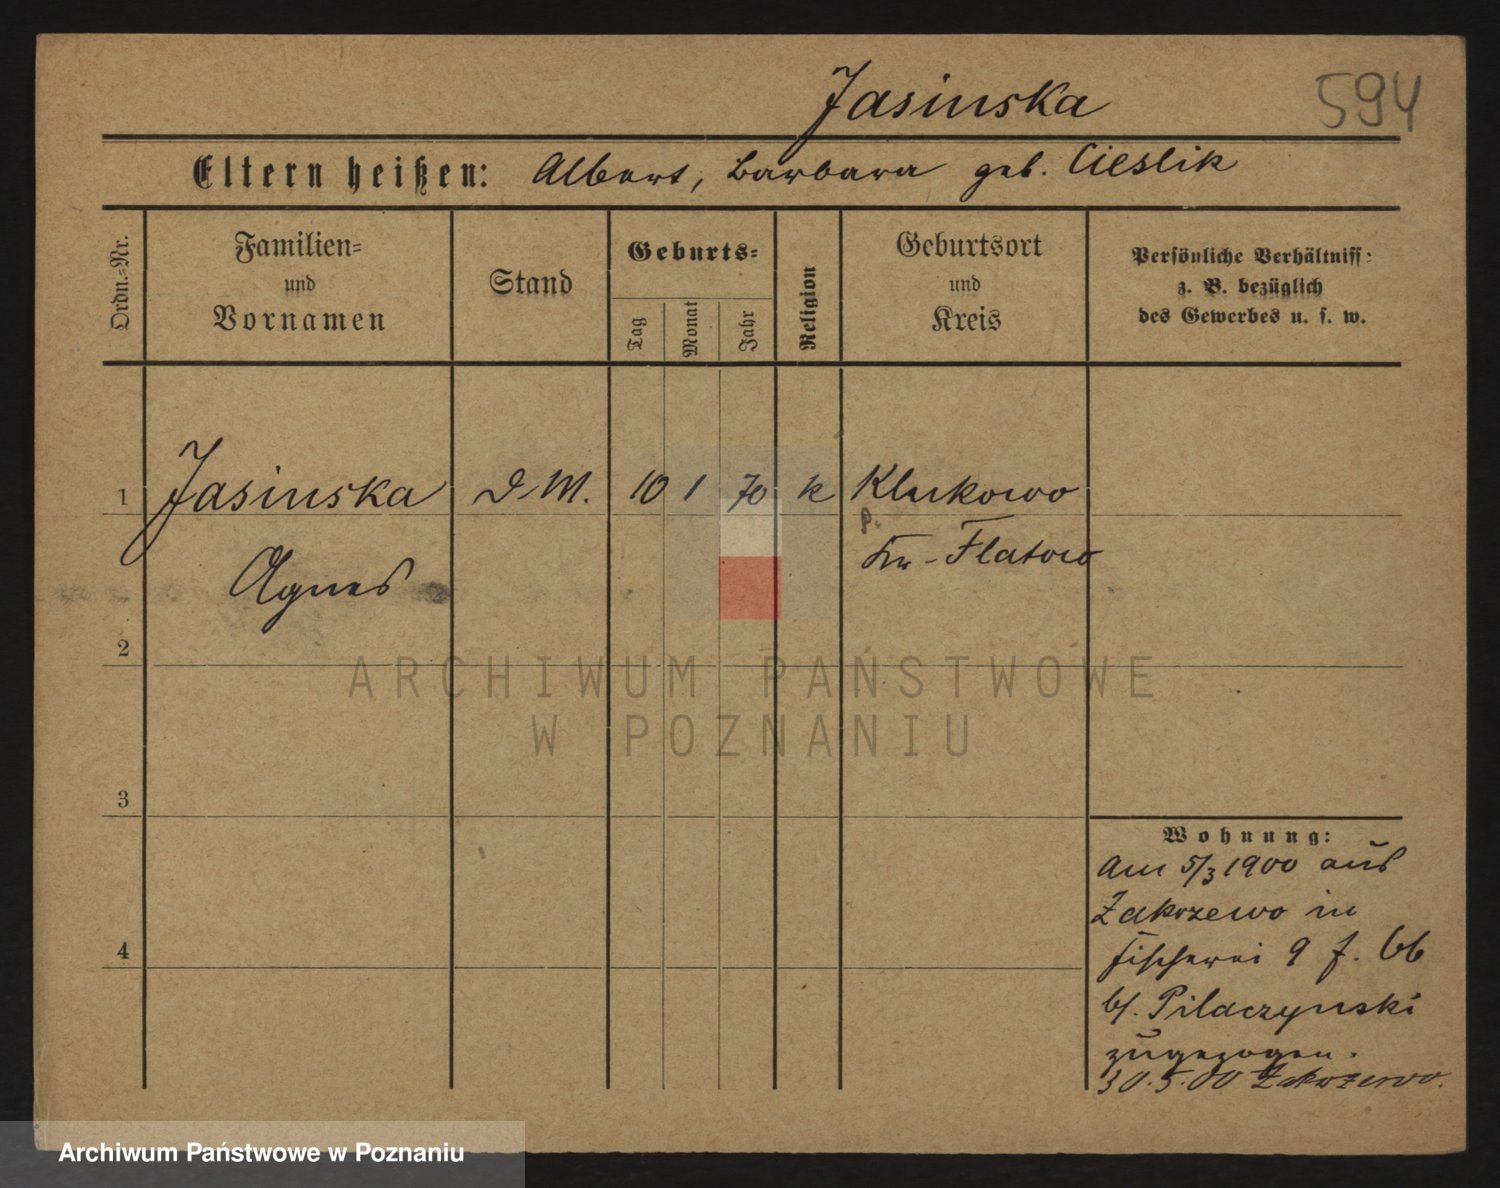 Jasinska 594
Eltern heißen: Albert, Barbara geb. Cieslik
Ordn.-Nr.
Familien-
und
Vornamen
Stand
Geburts-
Tag
Monat
Jahr
Religion
Geburtsort
und
Kreis
Persönliche Verhältniss:
z. B. bezüglich
des Gewerbes u. s. w.
1 Jasinska D.M. 10 1 70 k Klukowo
Agnes
Kr. Flatow
2
3
4
ARCHIWUM PAŃSTWOWE
W POZNANIU
Wohnung:
Am 5/3 1900 aus
Zakrzewo in
Fischerei 9
b/. Pilaczynski
zugezogen.
30.5.00 Zakrzewo.
Archiwum Państwowe w Poznaniu